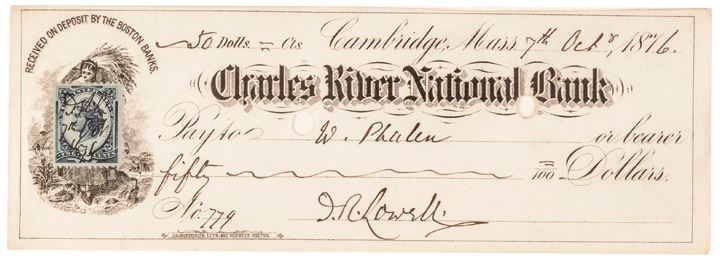 RECEIVED ON DEPOSIT BY THE BOSTON BANKS.
50 Dolls = Cts Cambridge, Mass. 7th Octr, 1876.
Charles River National Bank
Pay to W. Phalen or bearer
fifty 00/100 Dollars.
No. 779 J.R. Lowell.